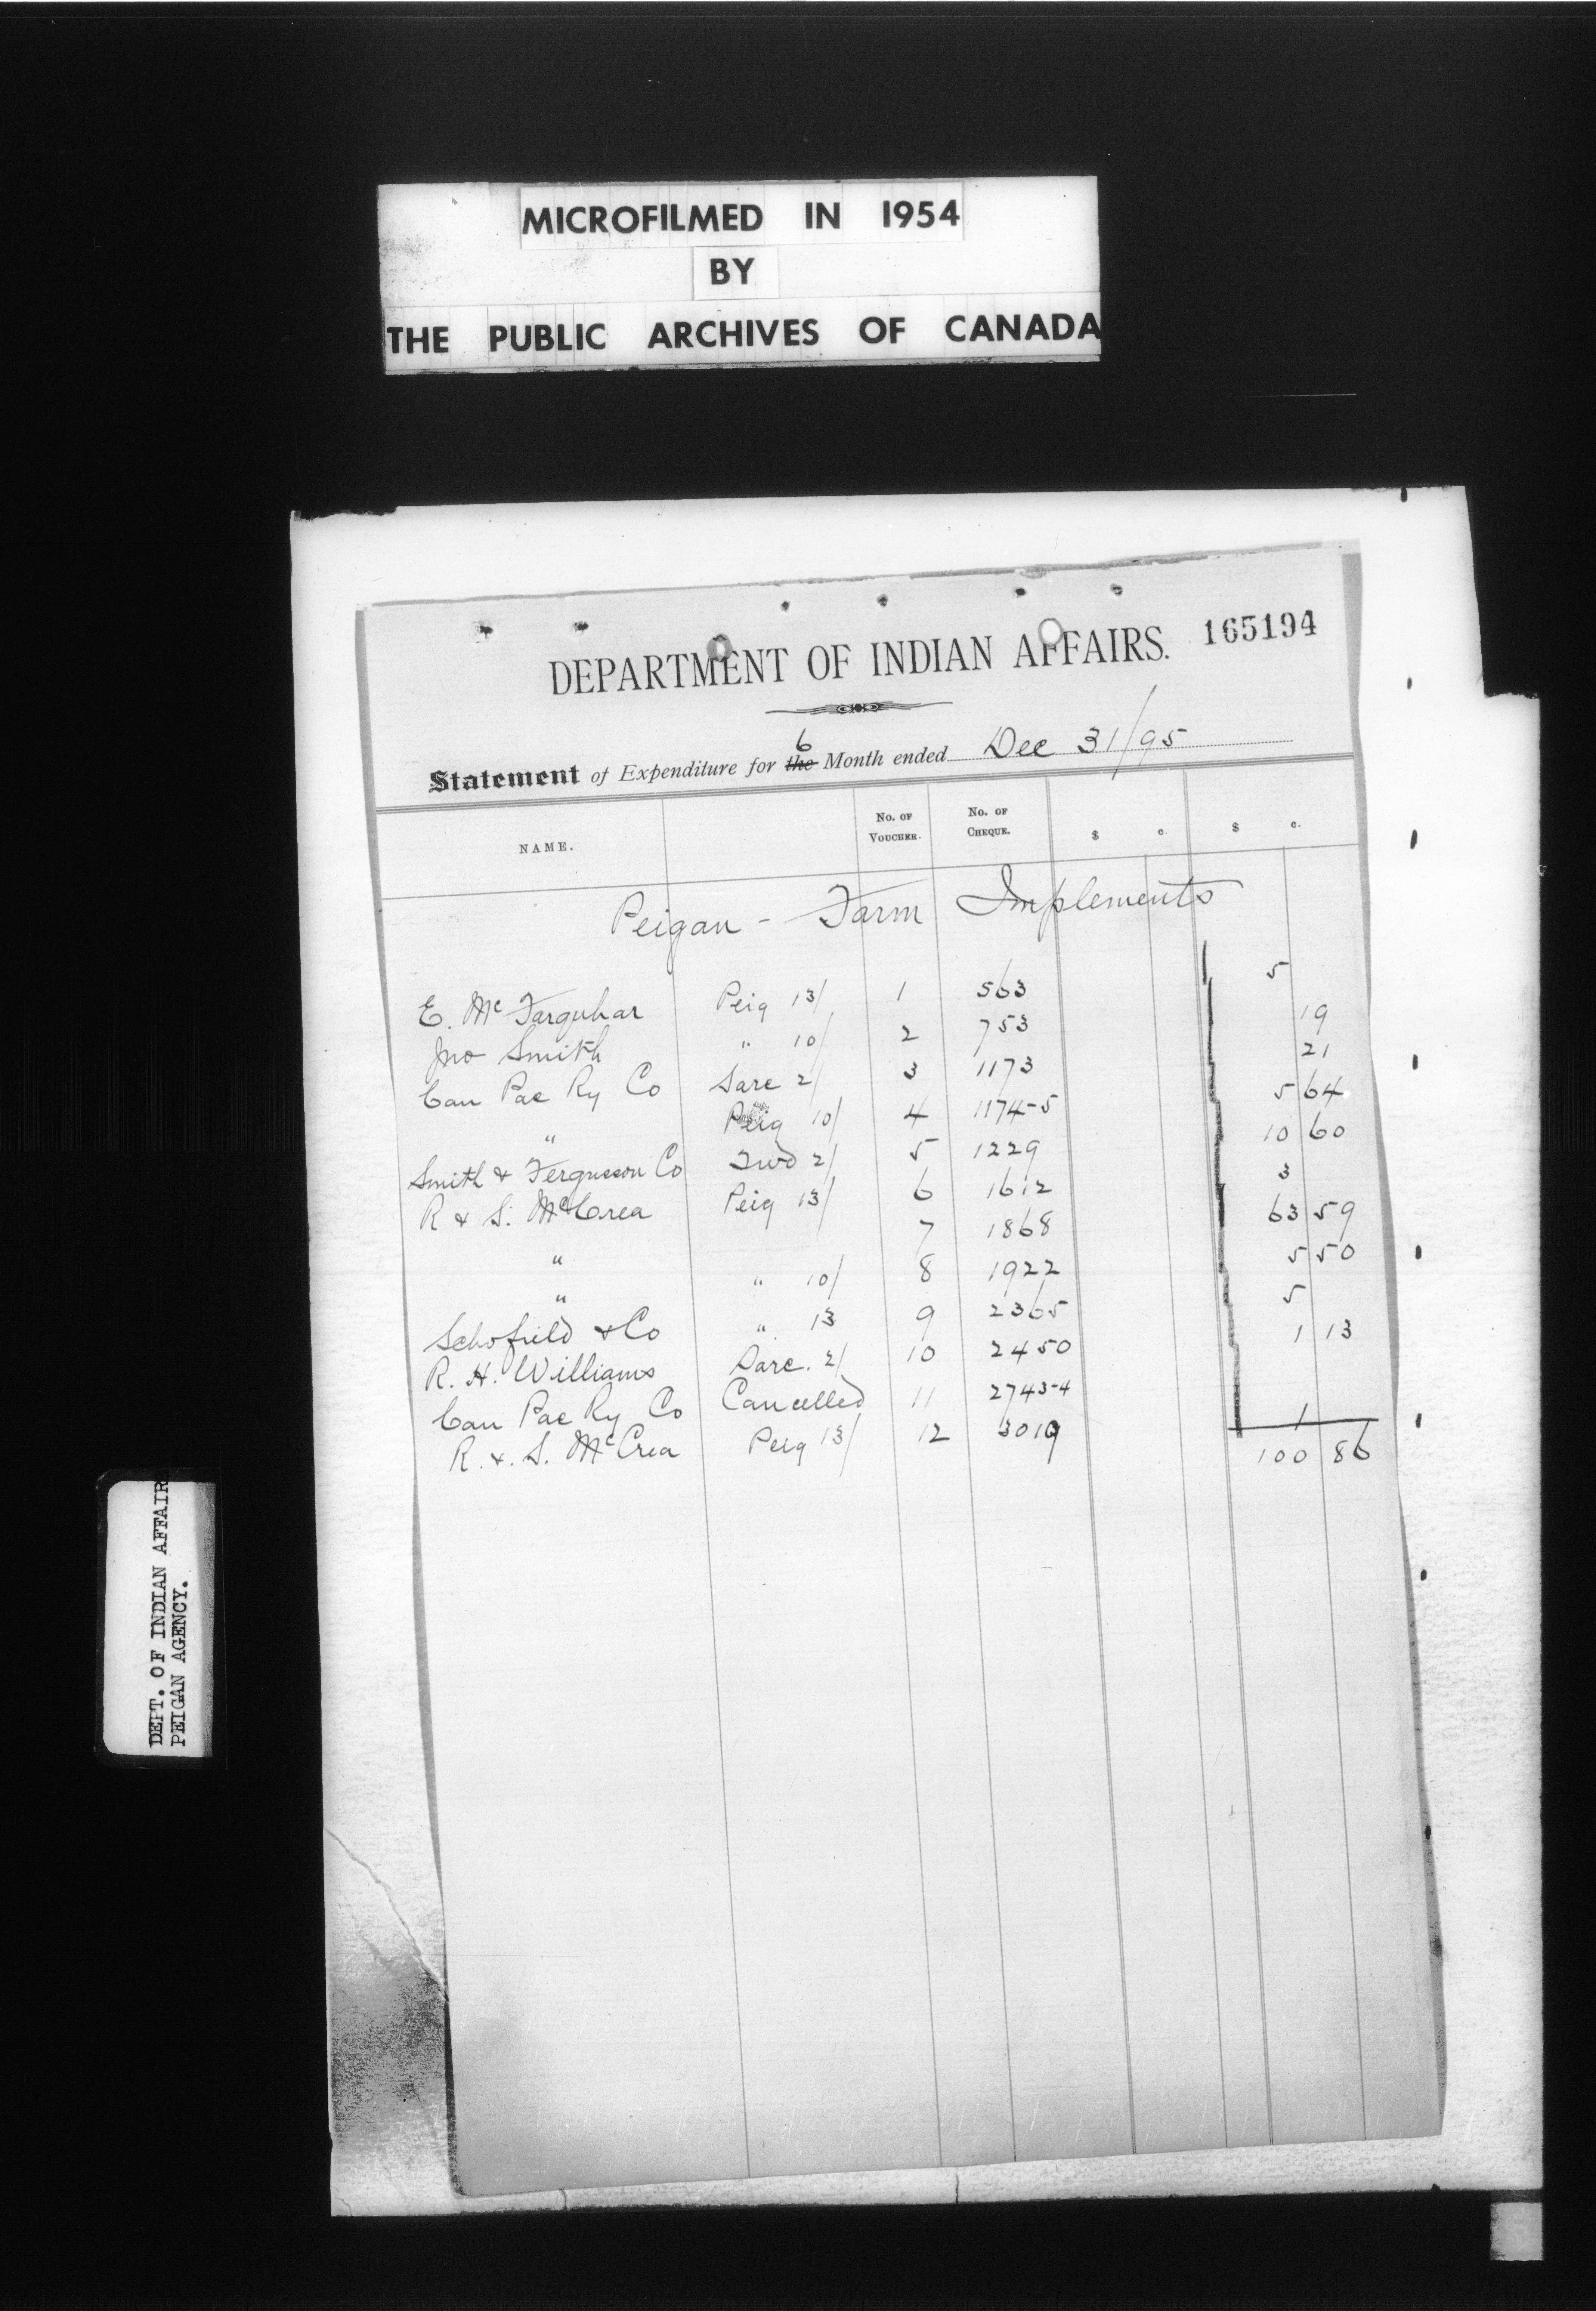 MICROFILMED IN 1954
BY
THE PUBLIC ARCHIVES OF CANADA
DEPARTMENT OF INDIAN AFFAIRS. 165194
Statement of Expenditure for the 6 Month ended Dec 31/95
NAME. No. OF VOUCHER. No. OF CHEQUE. $ c. $ c.
Peigan - Farm Implements
E. Mc Farquhar Peig 13/ 1 563 5
Jno Smith " 10/ 2 753 19
Can Pac Ry Co Sarc 2/ 3 1173 21
" Peig 10/ 4 1174-5 5 64
Smith & Fergusson Co Trd 2/ 5 1229 10 60
R & S. McCrea Peig 13/ 6 1612 3
" 7 1868 63 59
" " 10/ 8 1922 5 50
Schofield & Co " 13 9 2365 5
R. H. Williams Sarc. 2/ 10 2450 1 13
Can Pac Ry Co Cancelled 11 2743-4
R. & S. McCrea Peig 13/ 12 3019 1
100 86
DEPT. OF INDIAN AFFAIR
PEIGAN AGENCY.